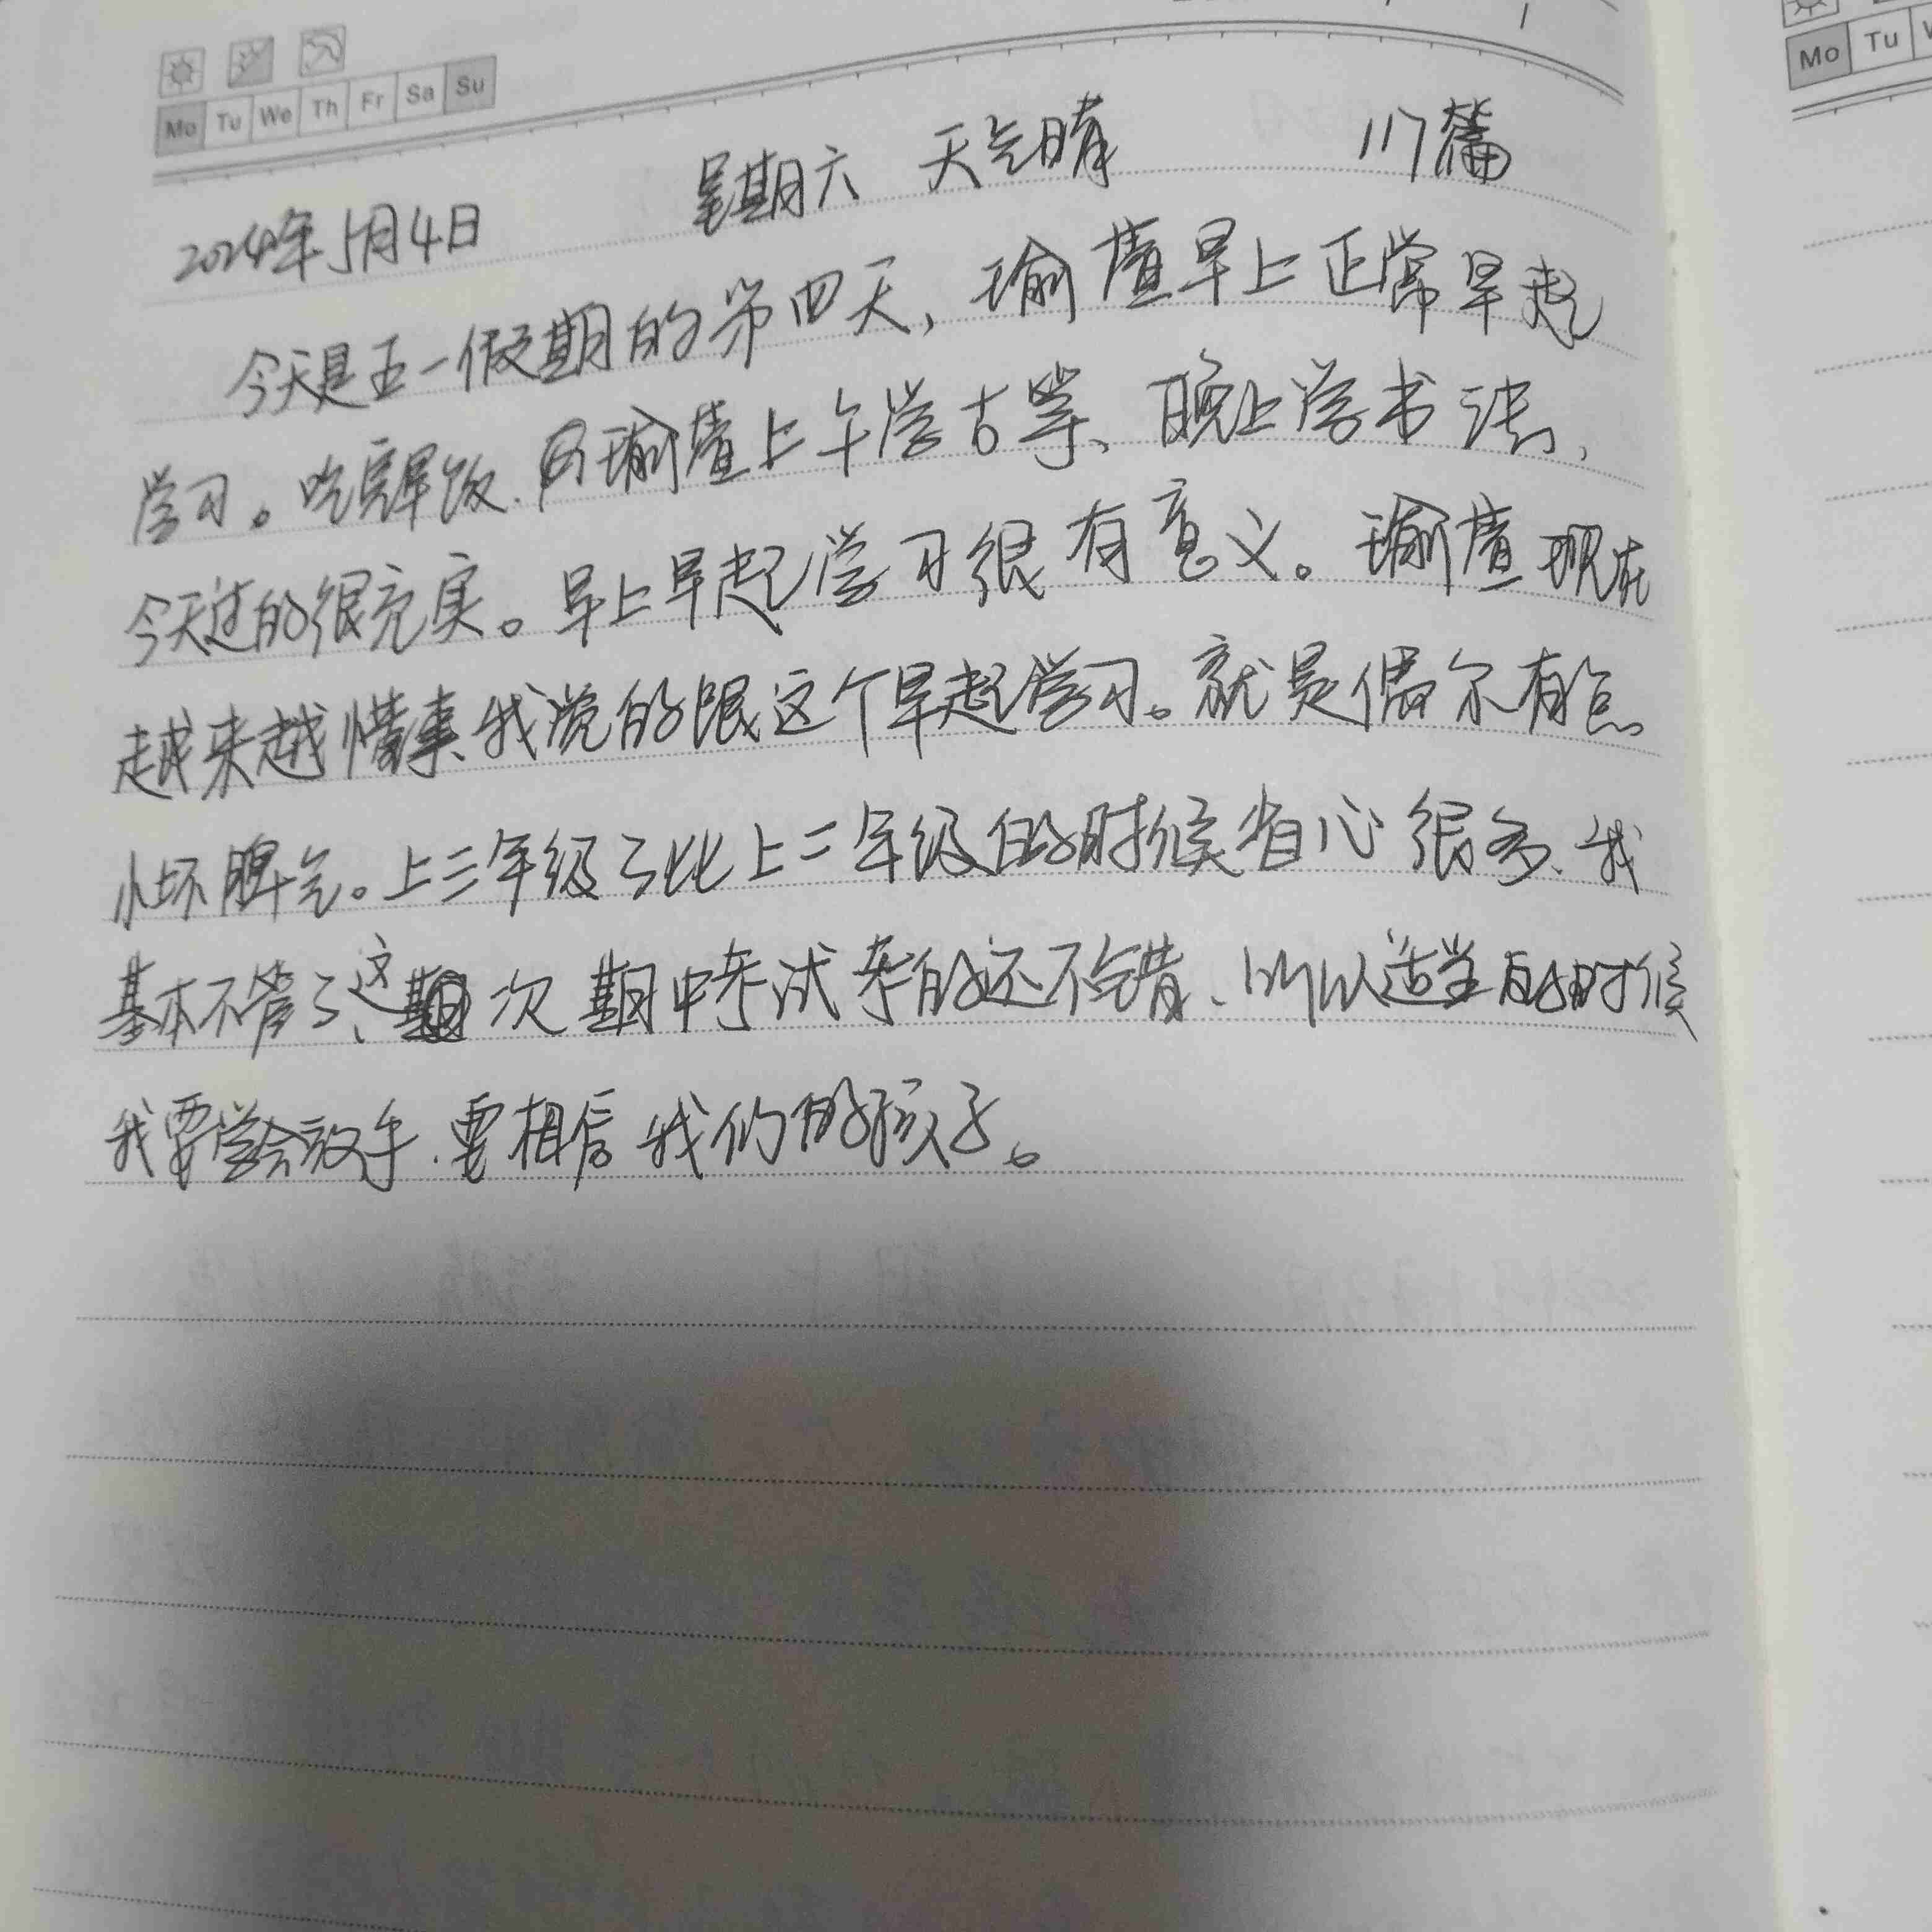 Mo Tu We Th Fr Sa Su
Mo Tu
2024年5月4日 星期六 天气晴 117篇
今天是五一假期的第四天，瑜萱早上正常早起
学习。吃完早饭、瑜萱上午学古筝、晚上学书法、
今天过的很充实。早上早起学习很有意义。瑜萱现在
越来越懂事、我觉的跟这个早起学习。就是偶尔有点
小坏脾气。上三年级了比上二年级的时候省心很多、我
基本不管了、这次期中考试考的还不错、所以适当的时候
我要学会放手、要相信我们的孩子。